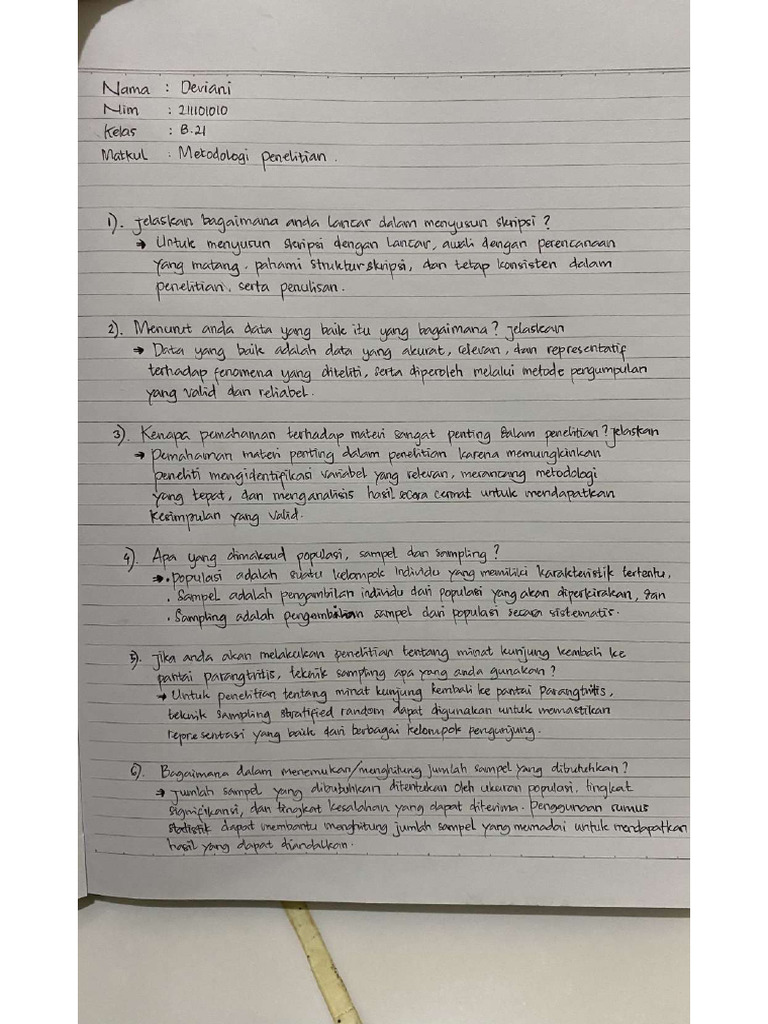 Nama : Deviani
Nim : 211101010
Kelas : B.21
Matkul : Metodologi penelitian.
1). Jelaskan bagaimana anda lancar dalam menyusun skripsi?
→ Untuk menyusun skripsi dengan lancar, awali dengan perencanaan
yang matang. pahami struktur skripsi, dan tetap konsisten dalam
penelitian, serta penulisan.
2). Menurut anda data yang baik itu yang bagaimana? jelaskan
→ Data yang baik adalah data yang akurat, relevan, dan representatif
terhadap fenomena yang diteliti, serta diperoleh melalui metode pengumpulan
yang valid dan reliabel.
3). Kenapa pemahaman terhadap materi sangat penting dalam penelitian? jelaskan
→ Pemahaman materi penting dalam penelitian karena memungkinkan
peneliti mengidentifikasi variabel yang relevan, merancang metodologi
yang tepat, dan menganalisis hasil secara cermat untuk mendapatkan
kesimpulan yang valid.
4). Apa yang dimaksud populasi, sampel dan sampling?
→ • Populasi adalah suatu kelompok individu yang memiliki karakteristik tertentu,
• Sampel adalah pengambilan individu dari populasi yang akan diperkirakan, dan
• Sampling adalah pengambilan sampel dari populasi secara sistematis.
5). Jika anda akan melakukan penelitian tentang minat kunjung kembali ke
pantai parangtritis, teknik sampling apa yang anda gunakan?
→ Untuk penelitian tentang minat kunjung kembali ke pantai parangtritis,
teknik sampling stratified random dapat digunakan untuk memastikan
representasi yang baik dari berbagai kelompok pengunjung.
6). Bagaimana dalam menemukan/menghitung jumlah sampel yang dibutuhkan?
→ Jumlah sampel yang dibutuhkan ditentukan oleh ukuran populasi, tingkat
signifikansi, dan tingkat kesalahan yang dapat diterima. Penggunaan rumus
statistik dapat membantu menghitung jumlah sampel yang memadai untuk mendapatkan
hasil yang dapat diandalkan.